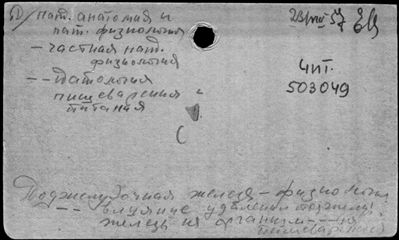 б) пат. анатомия и
пат. физиология
— частная пат.
физиология
— — патология
пищеварения и
питания
23/VIII 57
Чит.
503049
Поджелудочная железа — физиология
— — влияние удаления поджел.
железы на организм